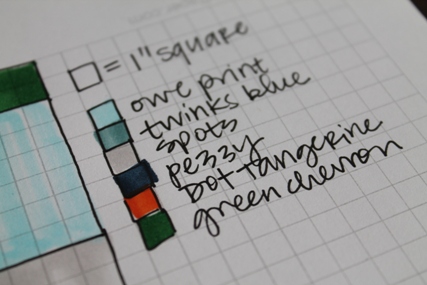 = 1" square
owe print
twinks blue
spots
pezzy
dot tangerine
green chevron